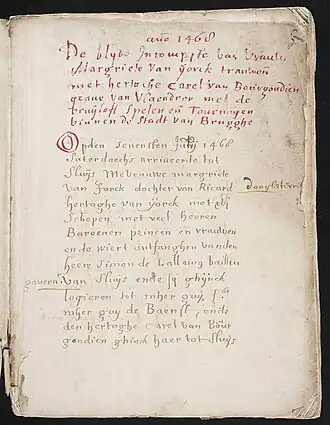 año 1468
De blyde Incompste van Vrauw
Margriete van Yorck trauwen
met hertoche Carel van Bourgondien
grave van Vlaendren met de
bruyloft Spelen en Tournoyen
binnen de Stadt van Brugghe
Opden sevensten July 1468
Saterdaechs arriveerde tot
Sluys Mevrauwe margriete
van Yorck dochter van Ricard
hertoghe van Yorck met
Schepen met veel heeren
Baroenen princen en vrauwen
ende wiert ontfanghen vanden
heere Simon de Lallaing bailliu
van Sluys ende sy ghijnck
logieren tot mher guy
mher guy de Baenst, ende
den hertoghe Carel van Bour
gondien ghinck haer tot Sluys